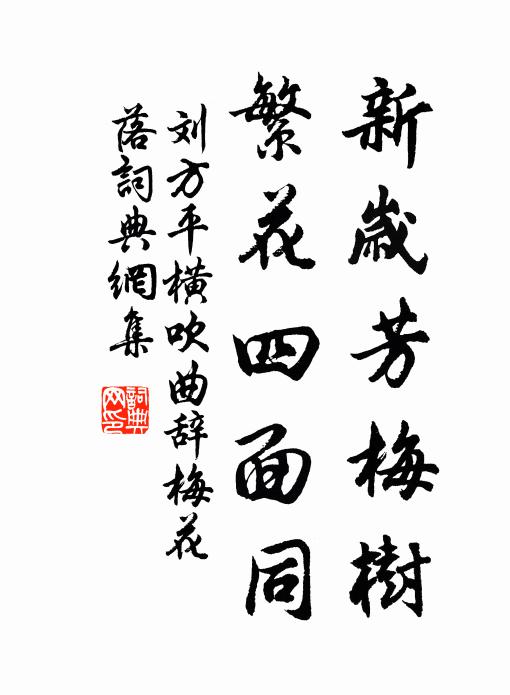 新歲芳梅樹
繁花四面同
刘方平橫吹曲辞梅花
落詞典網集
詞典
网印